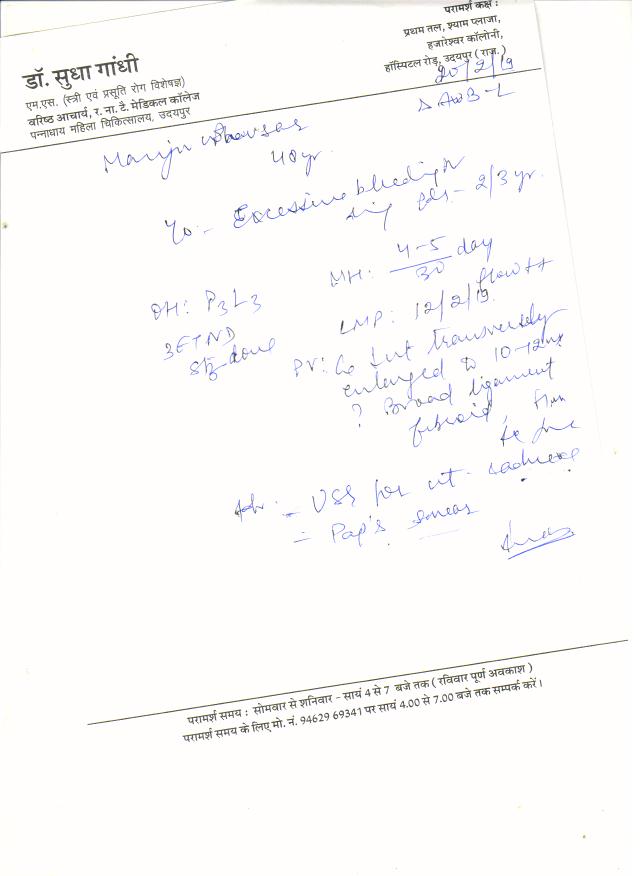 परामर्श कक्ष :
प्रथम तल, श्याम प्लाजा,
हजारेश्वर कॉलोनी,
हॉस्पिटल रोड़, उदयपुर ( राज.)
डॉ. सुधा गांधी
एम.एस. (स्त्री एवं प्रसूति रोग विशेषज्ञ)
वरिष्ठ आचार्य, र. ना. टै. मेडिकल कॉलेज
पन्नाधाय महिला चिकित्सालय, उदयपुर
20/2/19
Δ AUB-L
Manju
40 yr.
Excessive bleeding
2/3 yr.
MH: 4-5/30 day
flow ++
OH: P3L3
LMP: 12/2/19.
3FTND
done
PV: ut transversely
enlarged 10-12
? Broad ligament
fibroid,
Adv: - USG for ut
- Pap's smear
परामर्श समय : सोमवार से शनिवार - सायं 4 से 7 बजे तक ( रविवार पूर्ण अवकाश )
परामर्श समय के लिए मो. नं. 94629 69341 पर सायं 4.00 से 7.00 बजे तक सम्पर्क करें।